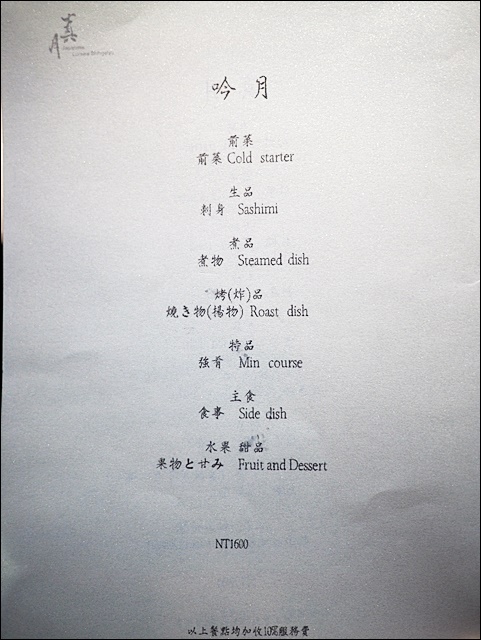 真
月
吟 月
前菜
前菜 Cold starter
生品
刺身 Sashimi
煮品
煮物 Steamed dish
烤(炸)品
燒き物(揚物) Roast dish
特品
強肴 Min course
主食
食事 Side dish
水果 甜品
果物と甘み Fruit and Dessert
NT1600
以上餐點均加收10%服務費